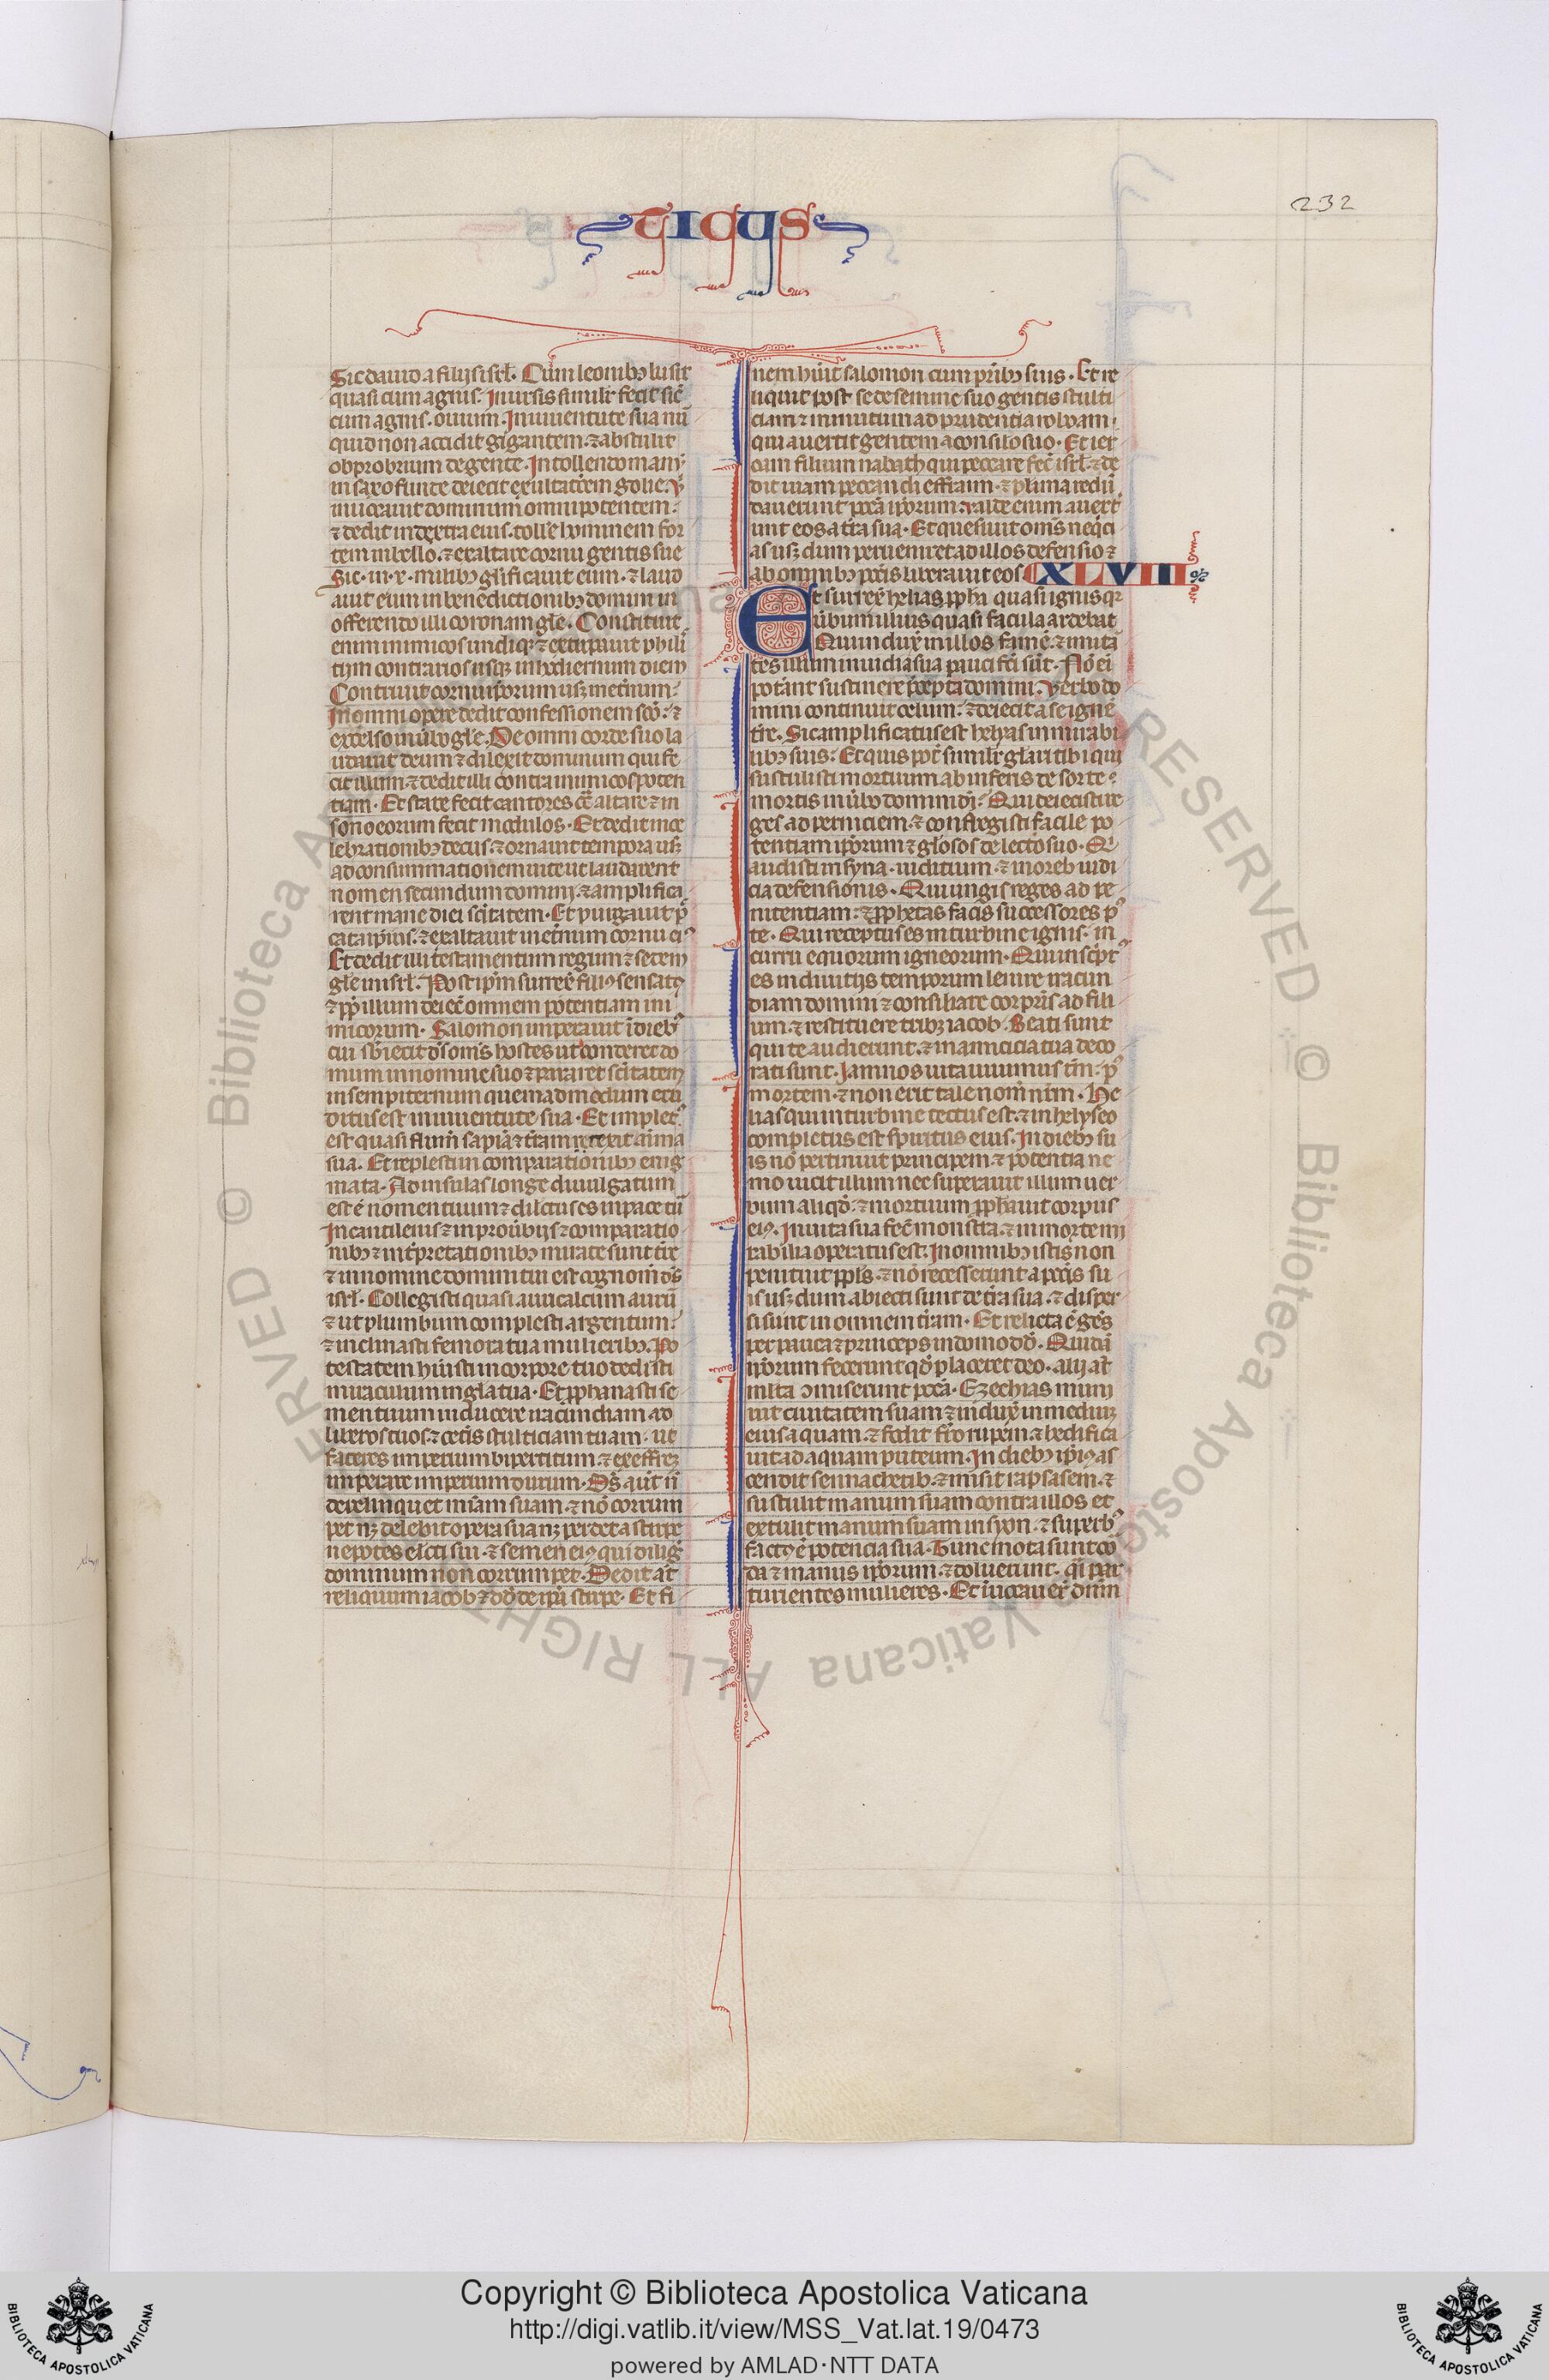 TICUS
232
Sic dauid a filijs isrl̄. Cum leonibꝫ lusit
quasi cum agnis. In ursis similr̄ fecit sic̄
cum agnis. ouium. In iuuentute sua nū
quid non accidit gigantem. ⁊ abstulit
obprobrium de gente. In tollendo manū
in saxo funde deiecit exultatōem golie. 
inuocauit dominum omnipotentem.
⁊ dedit in dextra eius. tolle hominem for
tem in bello. ⁊ exaltare cornu gentis sue
Sic .in .x. milibꝫ gl̄ificauit eum. ⁊ laud
auit eum in benedictionibꝫ domini in
offerendo illi coronam gl̄e. Constituit
enim inimicos undiqꝫ ⁊ extirpauit phili
tijm contrarios usqꝫ in hodiernum diem
Contriuit cornu ip̄orum usqꝫ in et̄num.
In omni opere dedit confessionem sc̄o. ⁊
excelso in ūbo gl̄e. De omni corde suo la
udauit deum ⁊ dilexit dominum qui fe
cit illum. ⁊ dedit illi contra inimicos poten
tiam. Et stare fecit cantores cō altare ⁊ in
sono eorum fecit modulos. Et dedit in ce
lebrationibꝫ decus. ⁊ ornauit tempora usqꝫ
ad consummationem uite ut laudarent
nomen secundum domini. ⁊ amplifica
rent mane dici sc̄itatem. Et purgauit pc̄
cata ip̄ius. ⁊ exaltauit in et̄num cornu eiꝰ
Et dedit illi testamentum regum ⁊ sedem
gl̄e in isrl̄. Post ip̄m surrex̄ filiꝰ sensatꝰ
⁊ pp̄ illum deiec̄ omnem potentiam ini
micorum. Salomon imperauit ī diebꝰ
cui sb̄iecit d̄s om̄s hostes ut conderet do
mum in nomine suo ⁊ pararet sc̄itatem
in sempiternum quemadmodum eru
ditus est in iuuentute sua. Et impletꝰ
est quasi flum̄ sapīa ⁊ t̄ram retexit anima
sua. Et replesti in comparationibꝫ enig
mata. Ad insulas longe diuulgatum
est ē nomen tuum ⁊ dilectus es in pace tū
In cantilenis ⁊ in prou̇bijs ⁊ comparatio
nibꝫ ⁊ int̄pretationibꝫ mirate sunt t̄re
⁊ in nomine domini cui est cognom̄ d̄s
isrl̄. Collegisti quasi auricalcum aurū
⁊ ut plumbum complesti argentum.
⁊ inclinasti femora tua mulieribꝫ. Po
testatem hūisti in corpore tuo dedisti
maculum in gl̄a tua. Et pp̄hanasti se
men tuum inducere iracundiam ad
liberos tuos. ⁊ cet̄is stulticiam tuam. ut
faceres imperium bipertitum. ⁊ ex effrem
imperare imperium durum. D̄s aūt n̄
derelinquet mīam suam. ⁊ nō corrum
pet nꝫ delebit opera sua nꝫ perdet a stirpe
nepotes el̄cti sui. ⁊ semen eiꝰ qui diligit
dominum non corrumpet. Dedit at̄
reliquum iacob ⁊ dd̄ de ip̄i stirpe. Et fi
nem hūit salomon cum pr̄ibꝫ suis. Et re
liquit post se de semine suo gentis stulti
ciam ⁊ inminutum ad prudentia roboam.
qui auertit gentem a consilio suo. Et ier
oam filium nabath qui peccare fec̄ isrl̄. ⁊ de
dit uiam peccandi effraim. ⁊ plurima redū
dauerunt pcc̄a ip̄orum. valde enim auert
unt eos a t̄ra sua. Et quesiuit om̄s neqͥci
as usqꝫ dum perueniret ad illos defensio ⁊
ab omnibꝫ pcc̄is liberauit eos XLVIII
Et surrex̄ helias ppħa quasi ignis ⁊
ūbum illius quasi facula ardebat
Qui indux̄ in illos famē. ⁊ imita
tes illum inuidia sua pauci fc̄i sūt. Nō eī
poterant sustinere p̄cepta domini. Verbo do
mini continuit celum. ⁊ deiecit a se ignē
t̄re. Sic amplificatus est helyas in mirabi
libꝫ suis. Et quis pot̄ similr̄ gl̄ari tibi qui
sustulisti mortuum ab inferis de sorte
mortis in ūbo domini dī. Qui deiecisti re
ges ad perniciem. ⁊ confregisti facile po
tentiam ip̄orum ⁊ glōsos de lecto suo. Qͥ
audisti in syna. iuditium. ⁊ in oreb iudi
cia defensionis. Qui ungis reges ad pe
nitentiam. ⁊ pp̄hetas facis successores pꝰ
te. Qui receptus es in turbine ignis. in
curru equorum igneorum. Qui inscptꝰ
es in diuitijs temporum lenire iracun
diam domini ⁊ conciliare cor pr̄is ad fili
um. ⁊ restituere tribꝫ iacob. Beati sunt
qui te audierunt. ⁊ in amicicia tua deco
rati sunt. Iam nos uita uiuimus tm̄. pꝰ
mortem. ⁊ non erit tale nom̄ nrm̄. He
lias qui in turbine tectus est. ⁊ in helyseo
completus est spiritus eius. In diebꝫ su
is nō pertimuit principem. ⁊ potentia ne
mo uicit illum nec superauit illum uer
bum aliqd̄. ⁊ mortuum ppħauit corpus
eiꝰ. In uita sua fec̄ monstra. ⁊ in morte mi
rabilia operatus est. In omnibꝫ istis non
penituit ppl̄s. ⁊ nō recesserunt a pcc̄is su
is usqꝫ dum abiecti sunt de t̄ra sua. ⁊ disper
si sunt in omnem t̄ram. Et relicta ē gēs
per pauca ⁊ princeps in domo dd̄. Quidā
ip̄orum fecerunt qd̄ placeret deo. alij at̄
ml̄ta ↄmiserunt pcc̄a. Ezechias muni
uit ciuitatem suam ⁊ indux̄ in medium
eius aquam. ⁊ fodit ferro rupem ⁊ hedifica
uit ad aquam puteum. In diebꝫ ip̄iꝰ as
cendit sennacherib. ⁊ misit rapsasem. ⁊
sustulit manum suam contra illos et
extulit manum suam in syon. ⁊ superbꝰ
factꝰ ē potencia sua. Tunc mota sunt cor
da ⁊ manus ip̄orum. ⁊ doluerunt. qͥ par
turientes mulieres. Et īuocauer̄ dnm̄
Copyright © Biblioteca Apostolica Vaticana
http://digi.vatlib.it/view/MSS_Vat.lat.19/0473
powered by AMLAD·NTT DATA
BIBLIOTECA APOSTOLICA VATICANA
BIBLIOTECA APOSTOLICA VATICANA
© Biblioteca Apostolica Vaticana ALL RIGHTS RESERVED